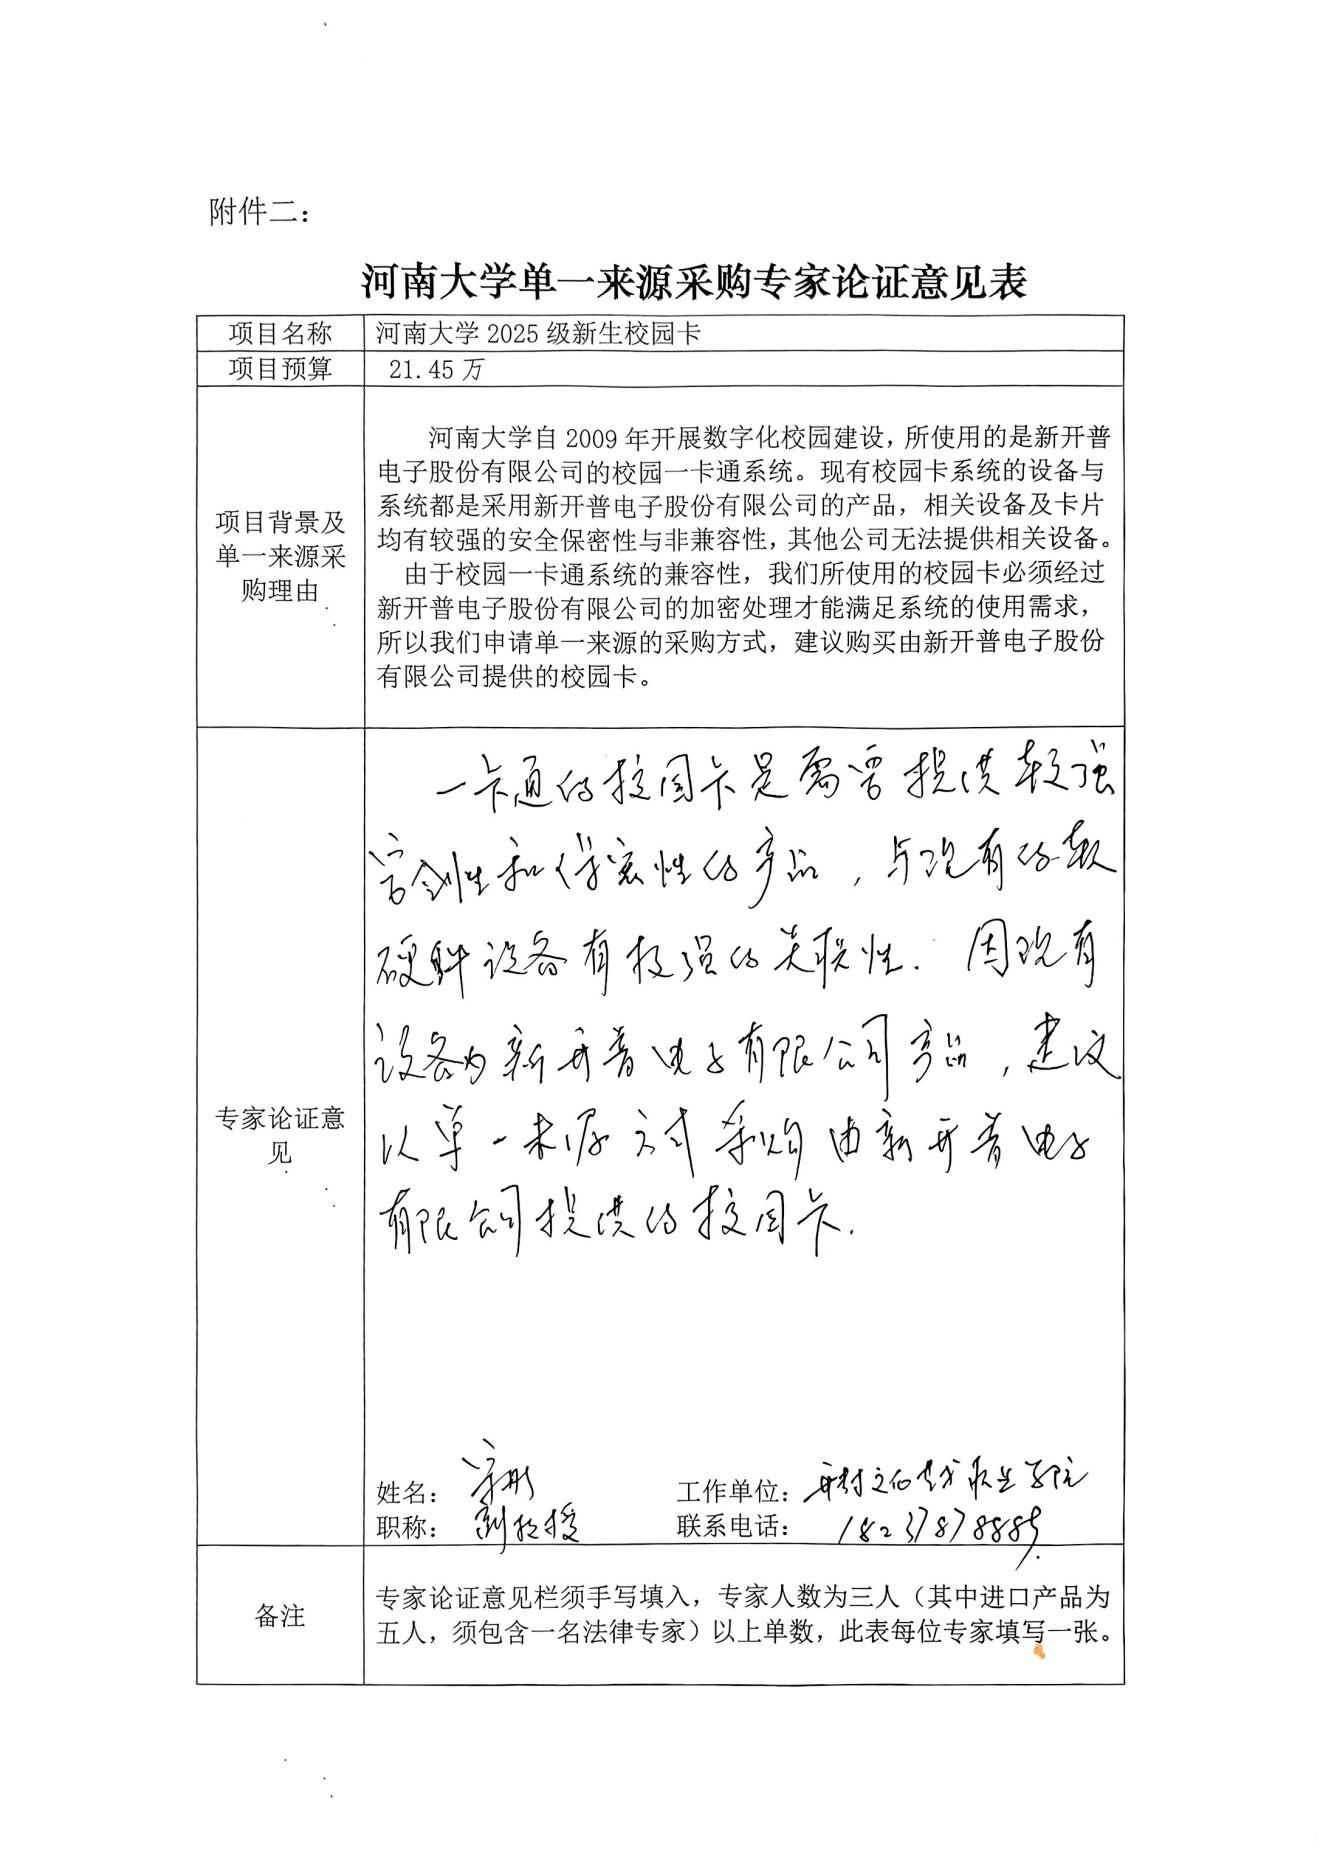 附件二：
河南大学单一来源采购专家论证意见表
项目名称
河南大学 2025 级新生校园卡
项目预算
21.45 万
项目背景及
单一来源采
购理由
河南大学自 2009 年开展数字化校园建设，所使用的是新开普
电子股份有限公司的校园一卡通系统。现有校园卡系统的设备与
系统都是采用新开普电子股份有限公司的产品，相关设备及卡片
均有较强的安全保密性与非兼容性，其他公司无法提供相关设备。
由于校园一卡通系统的兼容性，我们所使用的校园卡必须经过
新开普电子股份有限公司的加密处理才能满足系统的使用需求，
所以我们申请单一来源的采购方式，建议购买由新开普电子股份
有限公司提供的校园卡。
专家论证意
见
一卡通的校园卡是需要提供较强
性和保密性的产品，与现有的软
硬件设备有极强的关联性. 因现有
设备为新开普电子有限公司产品，建议
以单一来源方式采购由新开普电子
有限公司提供的校园卡.
姓名：
工作单位：开封文化艺术职业学院
职称：副教授
联系电话：18237878889
备注
专家论证意见栏须手写填入，专家人数为三人（其中进口产品为
五人，须包含一名法律专家）以上单数，此表每位专家填写一张。